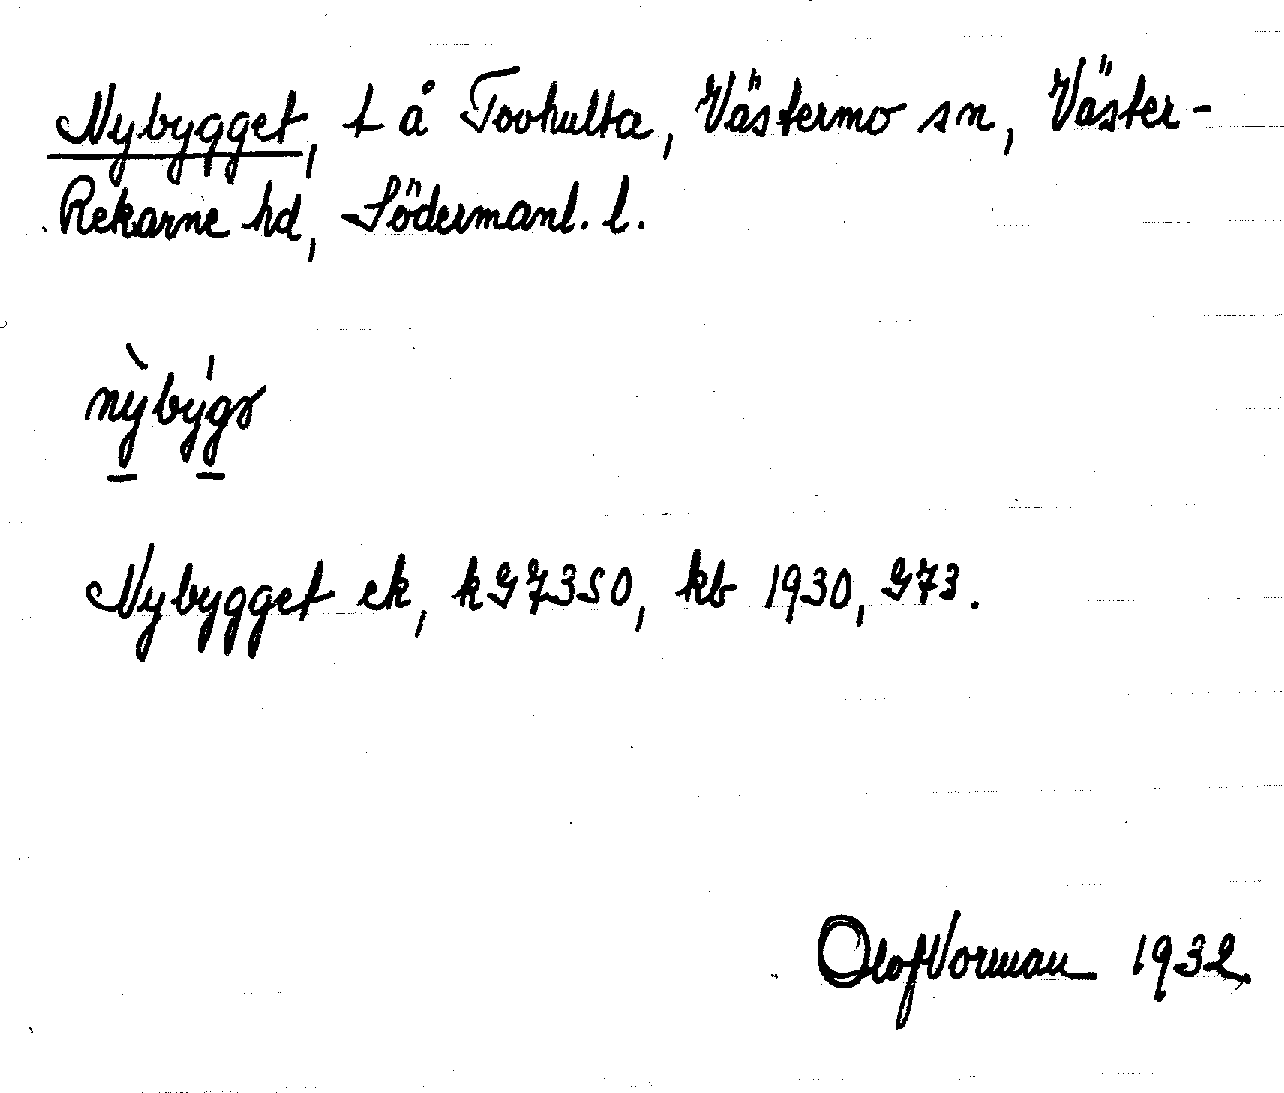 Nybygget, t å Tovhulta, Västermo sn, Väster-
Rekarne hd, Södermanl. l.
nỳbýgə
Nybygget ek, k97350, kb 1930, 973.
Olof Vorman 1932